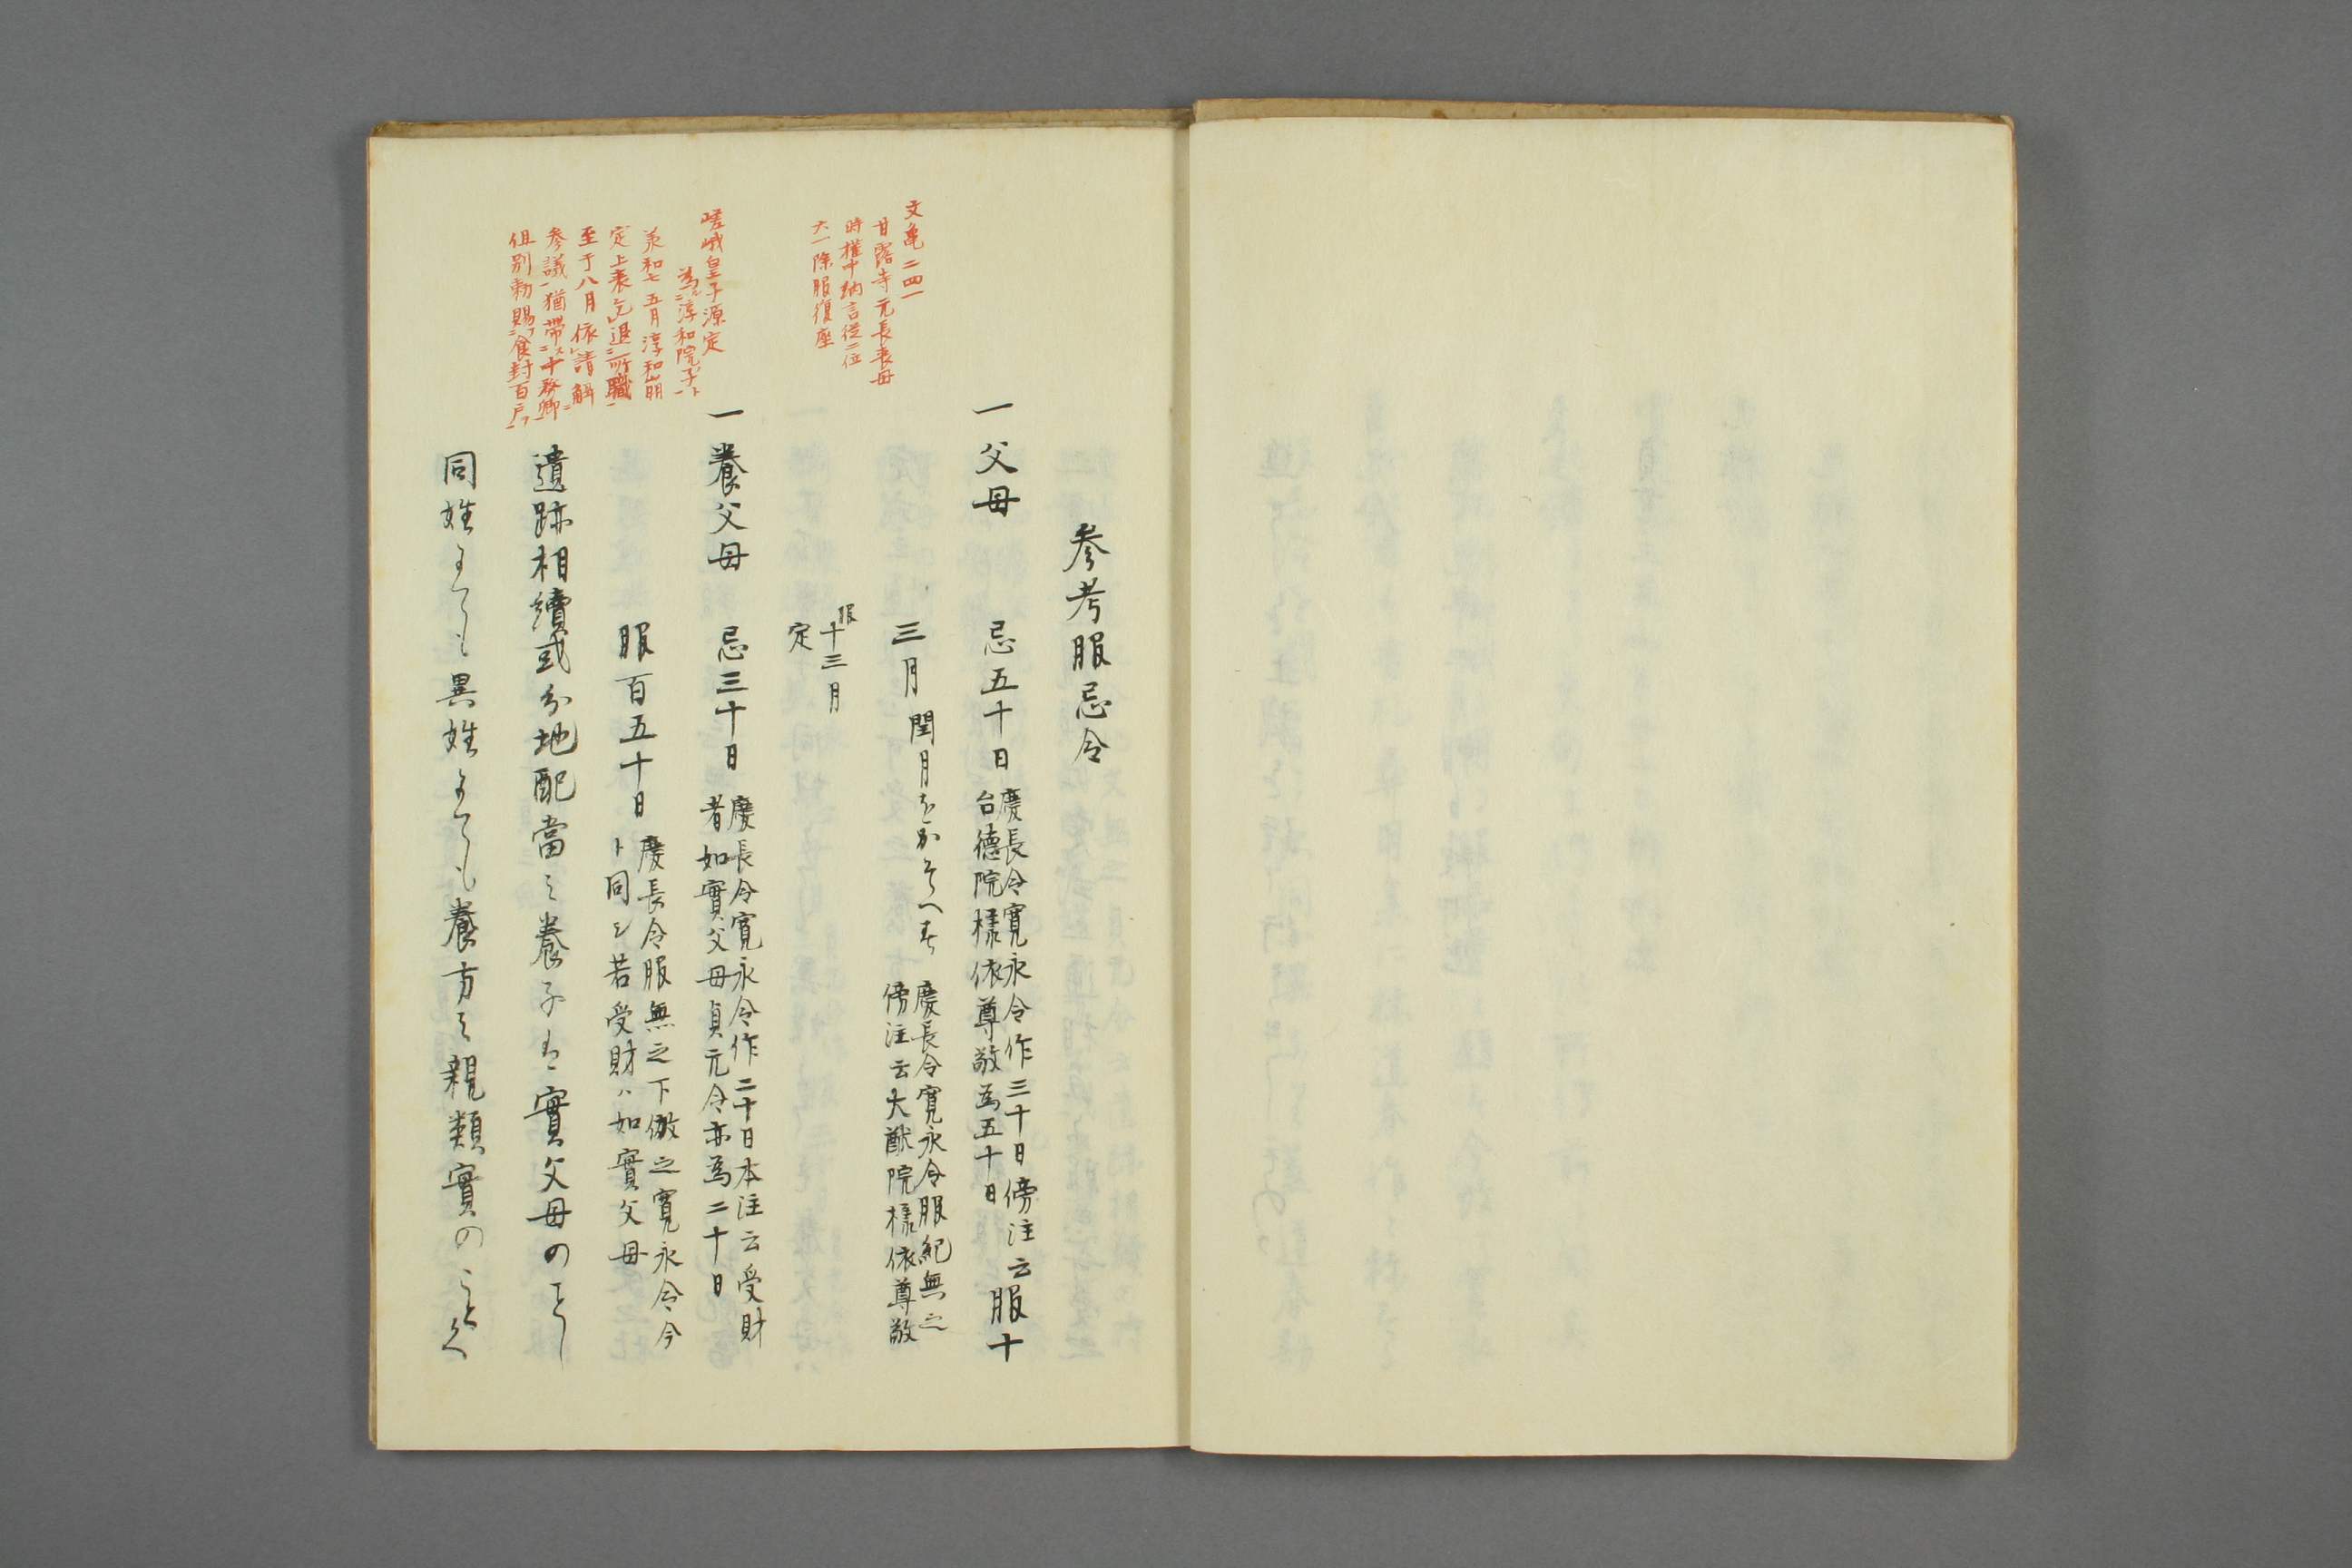 参考服忌令
一 父母 忌五十日 慶長令寛永令作三十日傍注云
台德院様依尊敬為五十日 服十
三月 閏月をかそへす 慶長令寛永令服紀無之
傍注云大猷院様依尊敬
服十三月
定
一 養父母 忌三十日 慶長令寛永令作二十日本注云受財
者如實父母貞元令亦為二十日
服百五十日 慶長令服無之下倣之寛永令今
ト同シ若受財ハ如實父母
遺跡相續或分地配當之養子は實父母のことし
同姓にても異姓にても養方之親類實のことく
文亀二四一
甘露寺元長喪母
時権中納言従二位
六一除服復座
嵯峨皇子源定
為淳和院子
承和七五月淳和崩
定上表乞退所職
至于八月依請解
参議猶帯中務卿
但別勅賜食封百戸